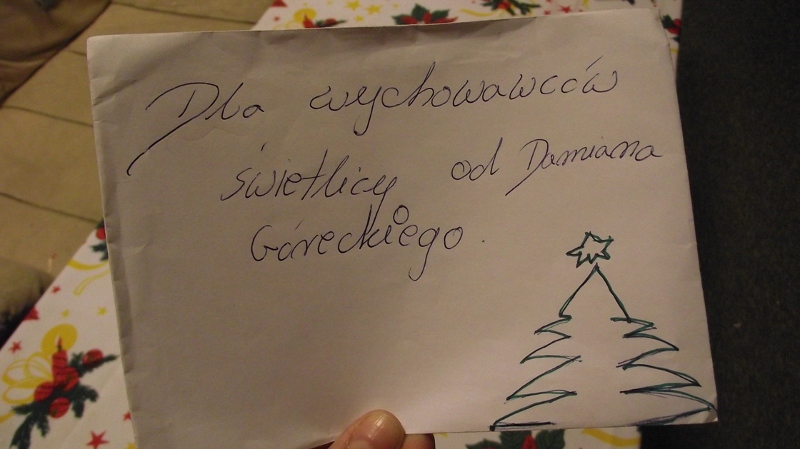 Dla wychowawców
świetlicy od Damiana
Góreckiego.